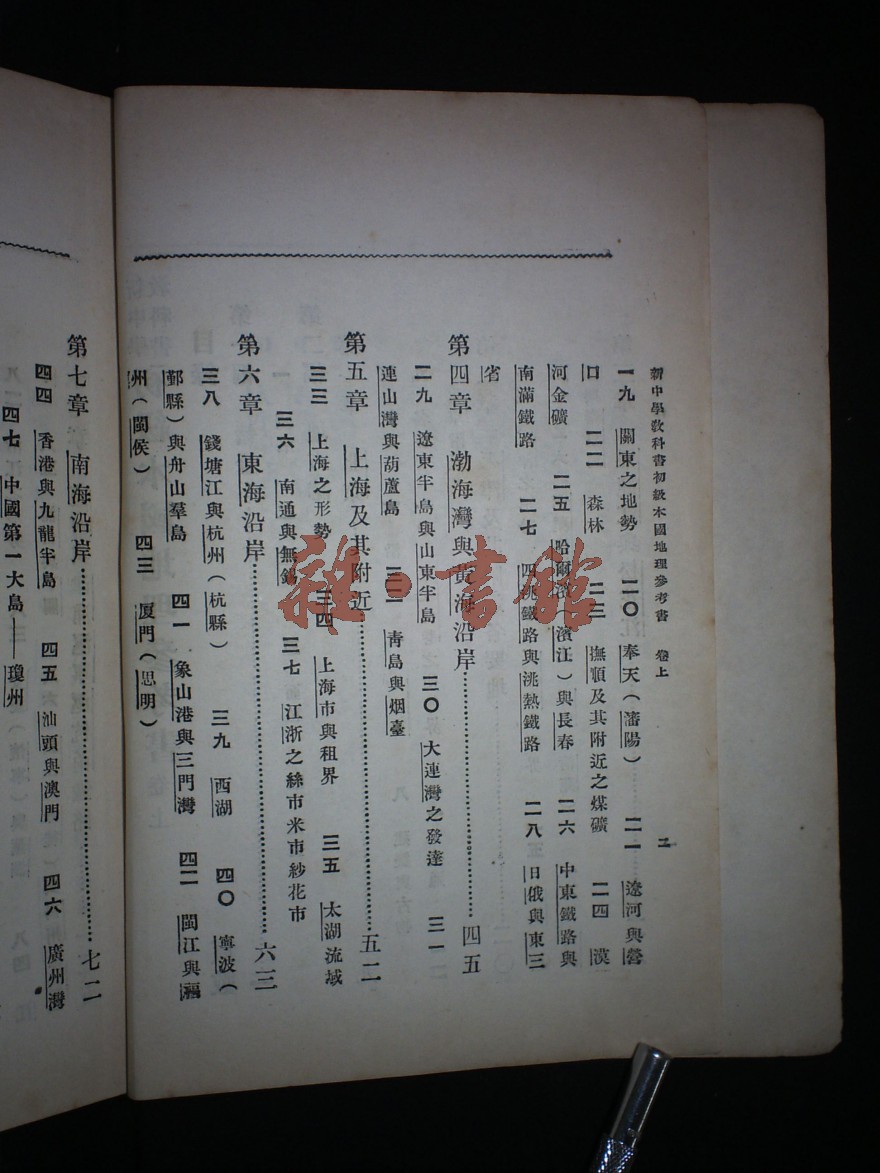 新中學教科書初級本國地理參考書 卷上 二
一九 關東之地勢 二〇 奉天（瀋陽） 二一 遼河與營
口 二二 森林 二三 撫順及其附近之煤礦 二四 漠
河金礦 二五 哈爾濱（濱江）與長春 二六 中東鐵路與
南滿鐵路 二七 四洮鐵路與洮熱鐵路 二八 日俄與東三
省
第四章 渤海灣與黃海沿岸 四五
二九 遼東半島與山東半島 三〇 大連灣之發達 三一
連山灣與葫蘆島 三二 青島與烟臺
第五章 上海及其附近 五二
三三 上海之形勢 三四 上海市與租界 三五 太湖流域
三六 南通與無錫 三七 江浙之絲市米市紗花市
第六章 東海沿岸 六三
三八 錢塘江與杭州（杭縣） 三九 西湖 四〇 寧波（
鄞縣）與舟山羣島 四一 象山港與三門灣 四二 閩江與福
州（閩侯） 四三 厦門（思明）
第七章 南海沿岸 七二
四四 香港與九龍半島 四五 汕頭與澳門 四六 廣州灣
四七 中國第一大島——瓊州
雜·書館